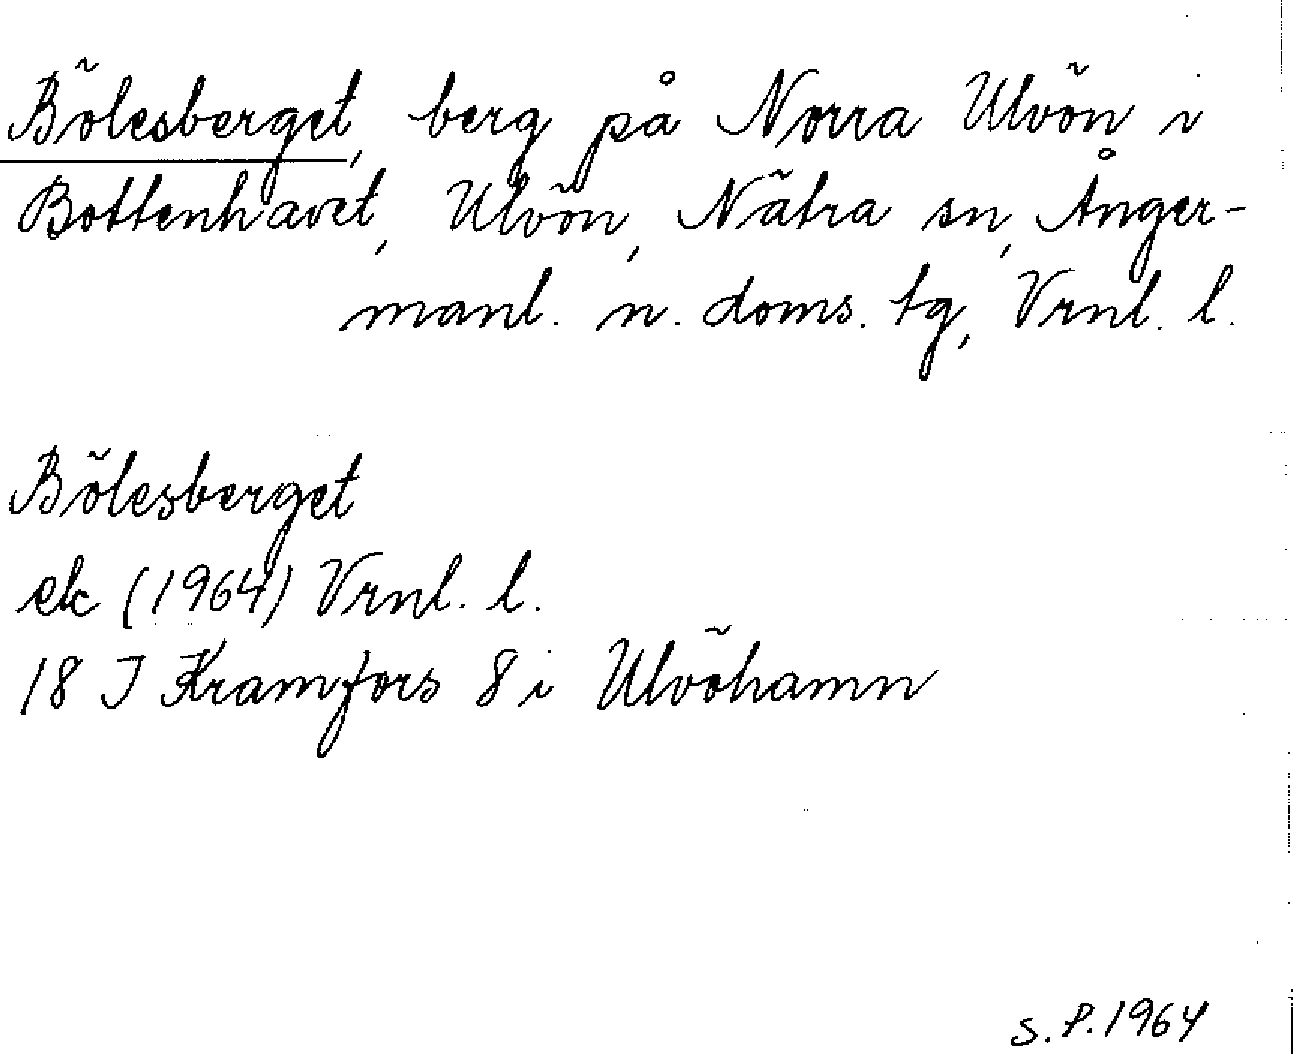 Bölesberget, berg på Norra Ulvön i
Bottenhavet, Ulvön, Nätra sn, Ånger-
manl. n. doms. tg, Vrnl. l.
Bölesberget
ek (1964) Vrnl. l.
18 J Kramfors 8 i Ulvöhamn
S.P. 1964